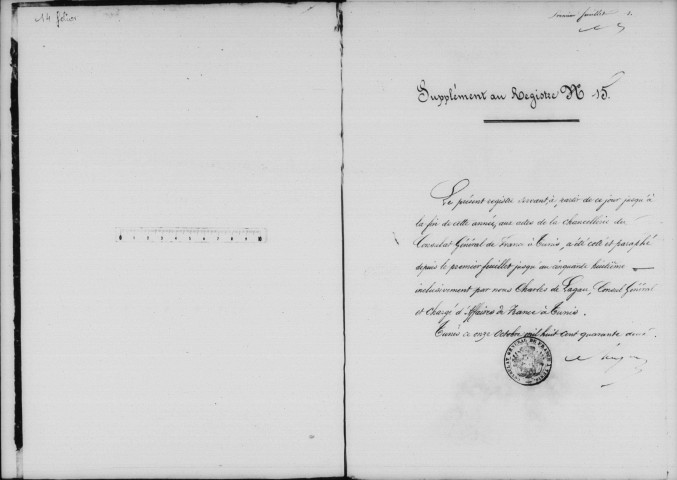 14 folios
premier feuillet
Supplément au Registre N 15.
Le présent registre servant, à partir de ce jour jusqu'à
la fin de cette année, aux actes de la chancellerie du
Consulat Général de France à Tunis, a été coté et paraphé
depuis le premier feuillet jusqu'au cinquante huitième
inclusivement par nous Charles de Lagau, Consul Général
et Chargé d'Affaires de France à Tunis.
Tunis ce onze Octobre mil huit cent quarante deux.
CONSULAT GENERAL DE FRANCE A TUNIS
0 1 2 3 4 5 6 7 8 9 10